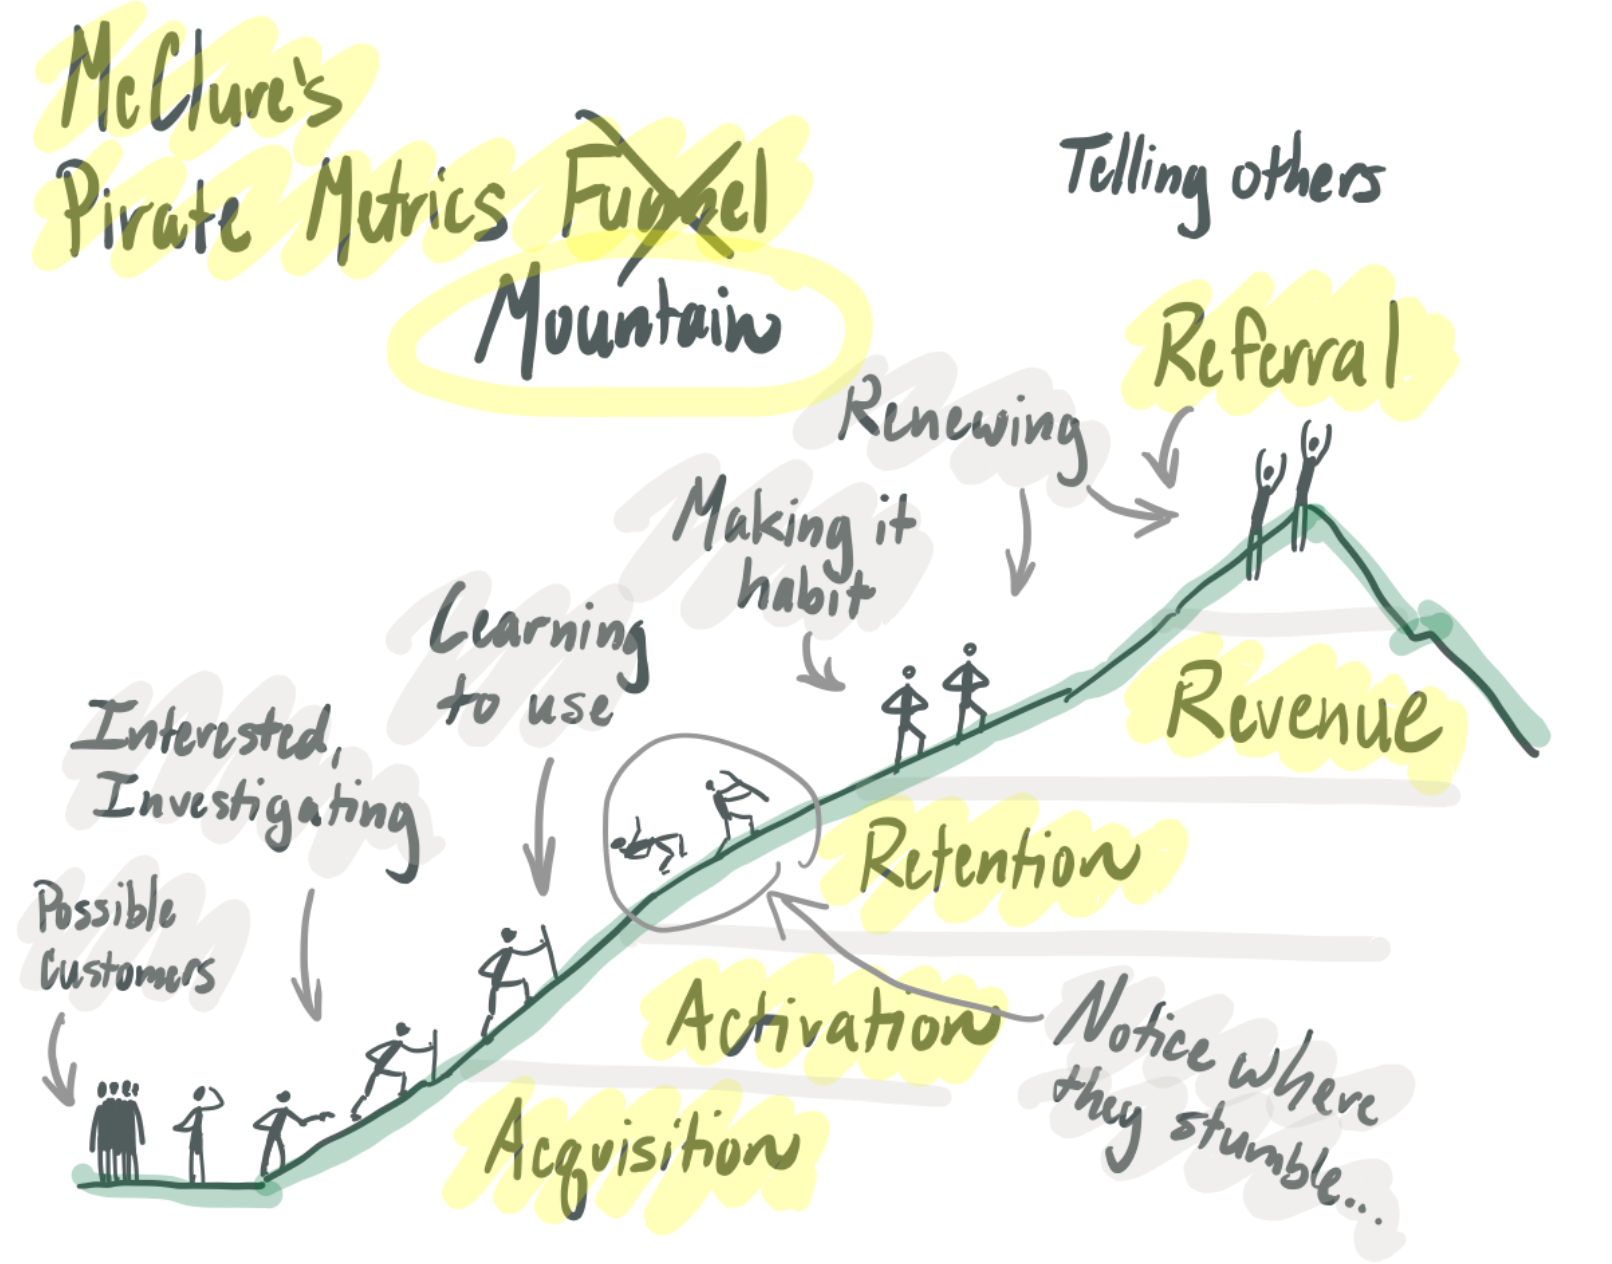 McClure's
Pirate Metrics Funnel
Mountain
Telling others
Referral
Renewing
Making it
habit
Learning
to use
Interested,
Investigating
Possible
Customers
Revenue
Retention
Activation
Acquisition
Notice where
they stumble...